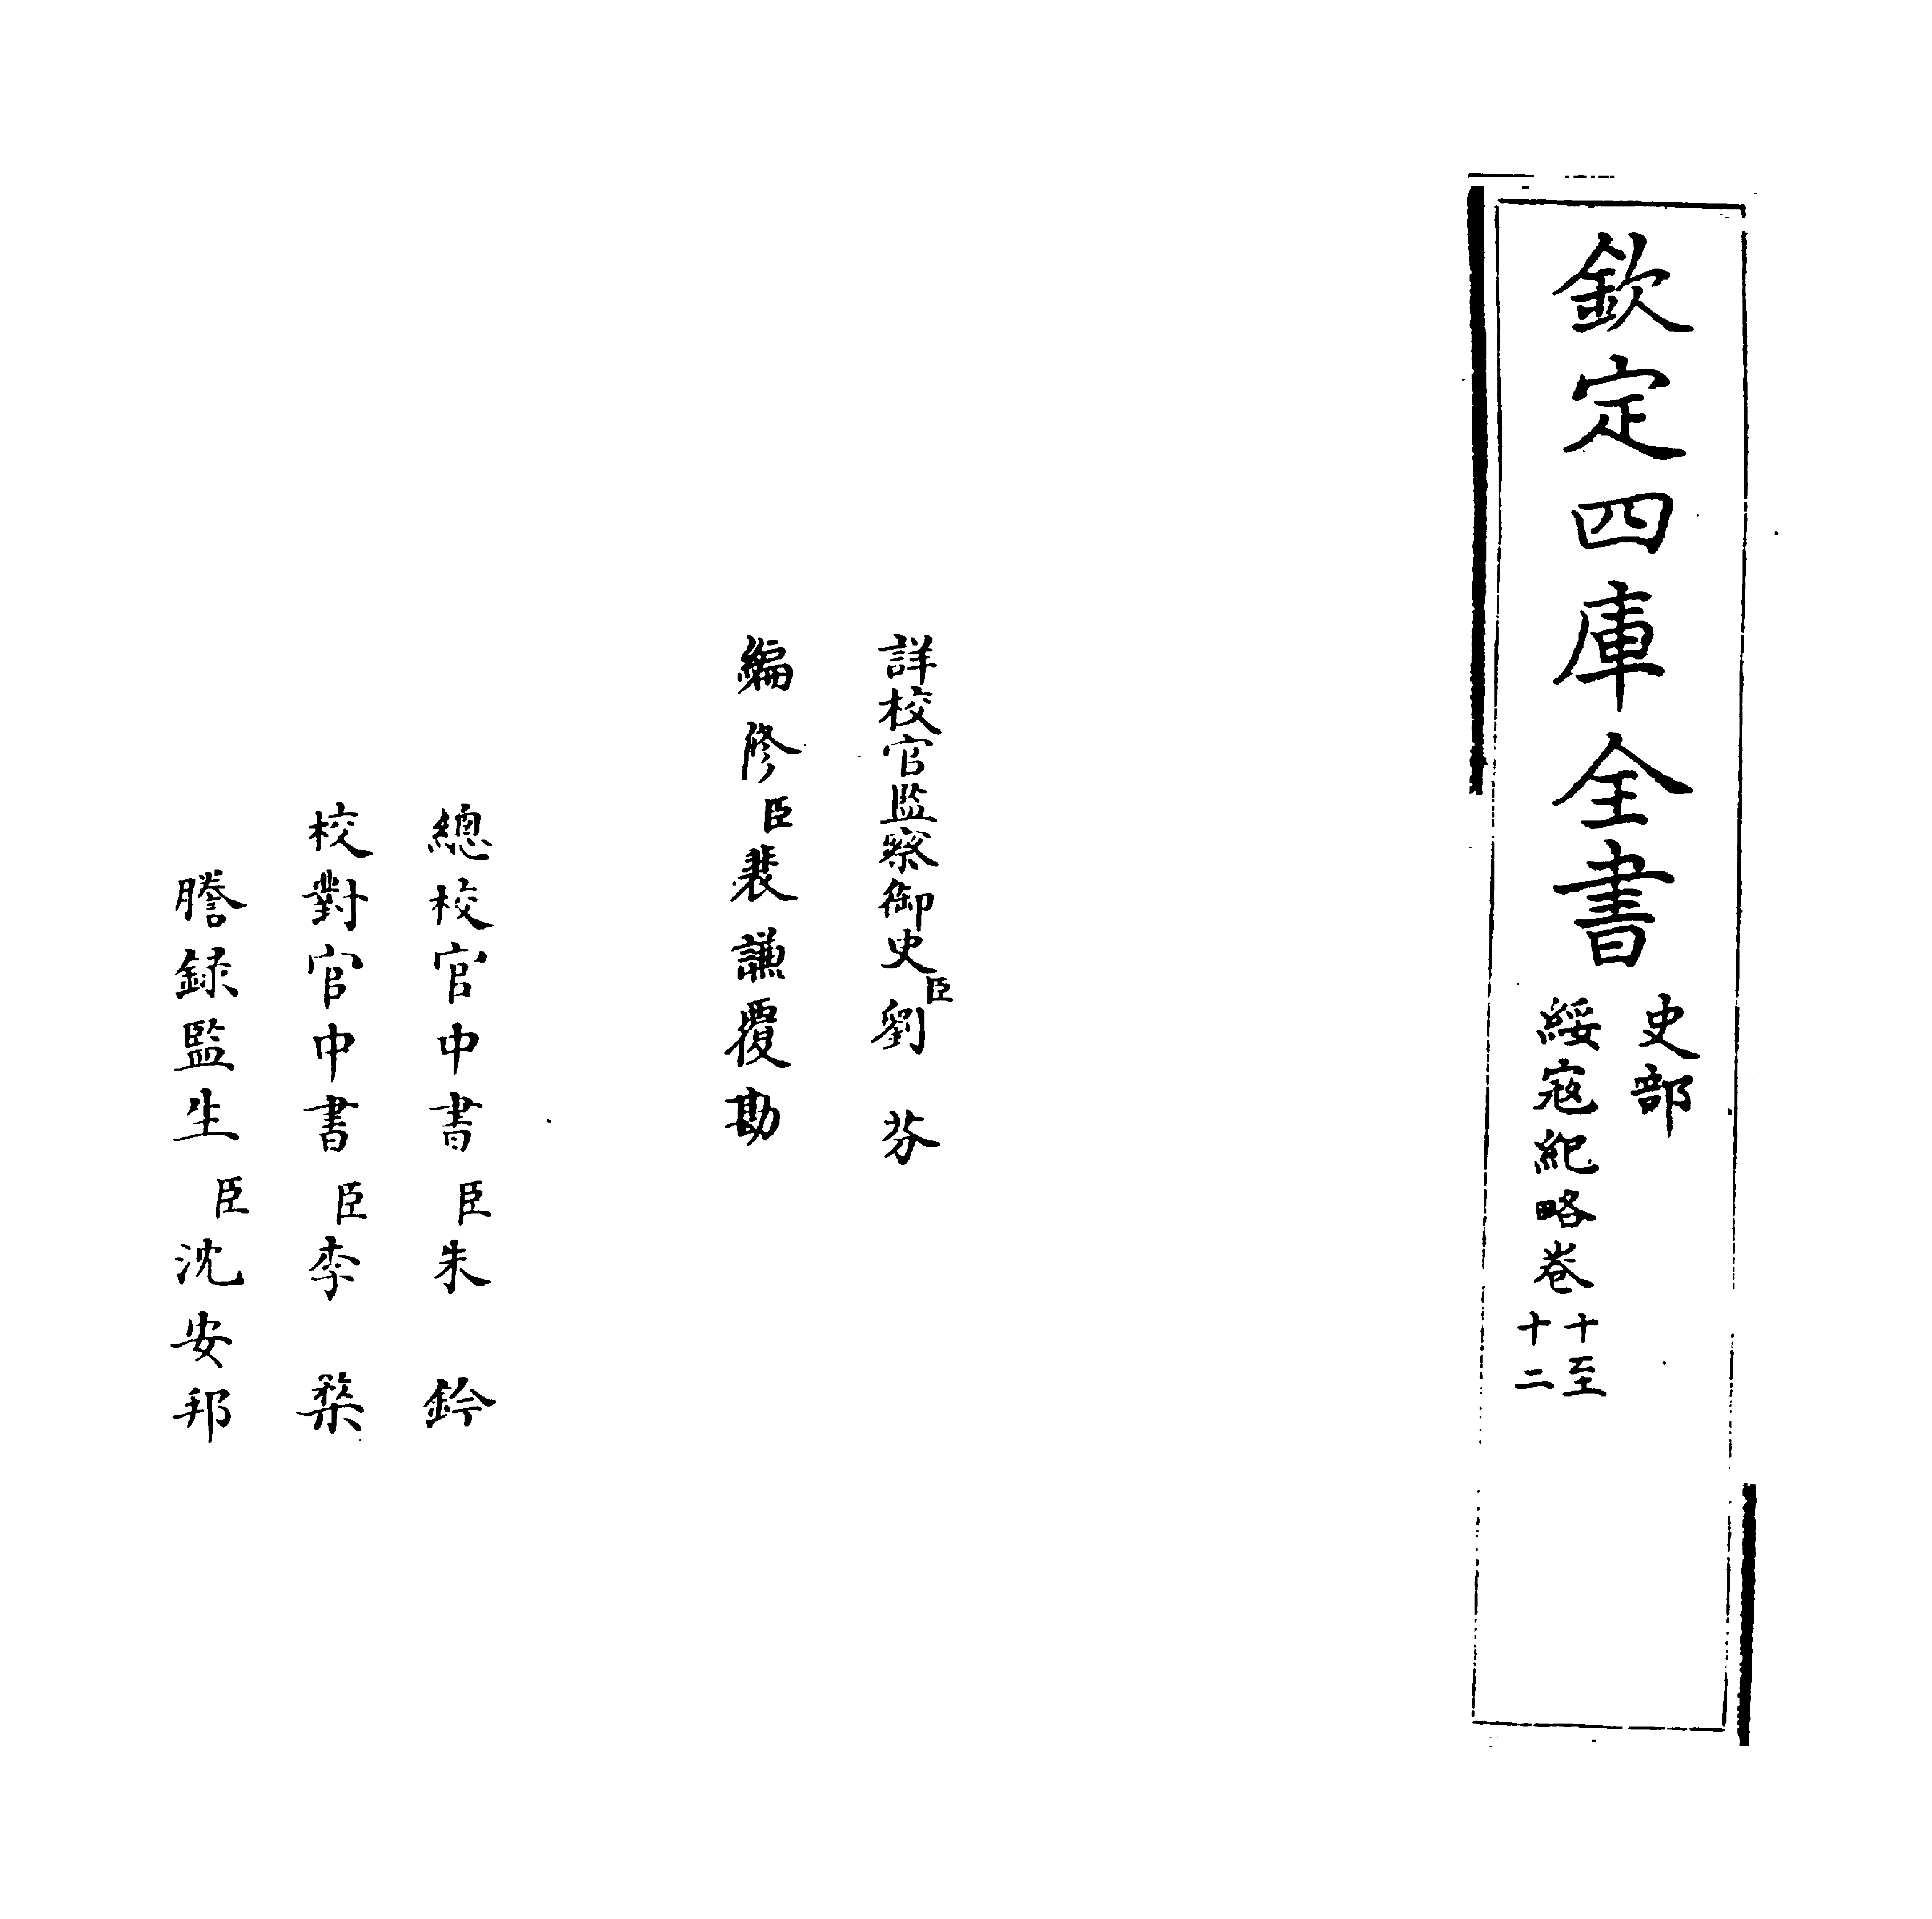 欽定四庫全書
史部
綏寇紀略卷十至十二
詳校官監察御史臣劉芬
編修臣裴謙覆勘
總校官中書臣朱鈐
校對官中書臣李楘
謄録監生臣沈安邦